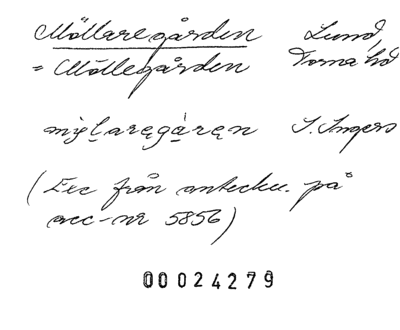 Möllaregården Lund,
= Möllegården Torna hd
I. Ingers
(Exc från anteckn. på
acc-nr 5856)
00024279